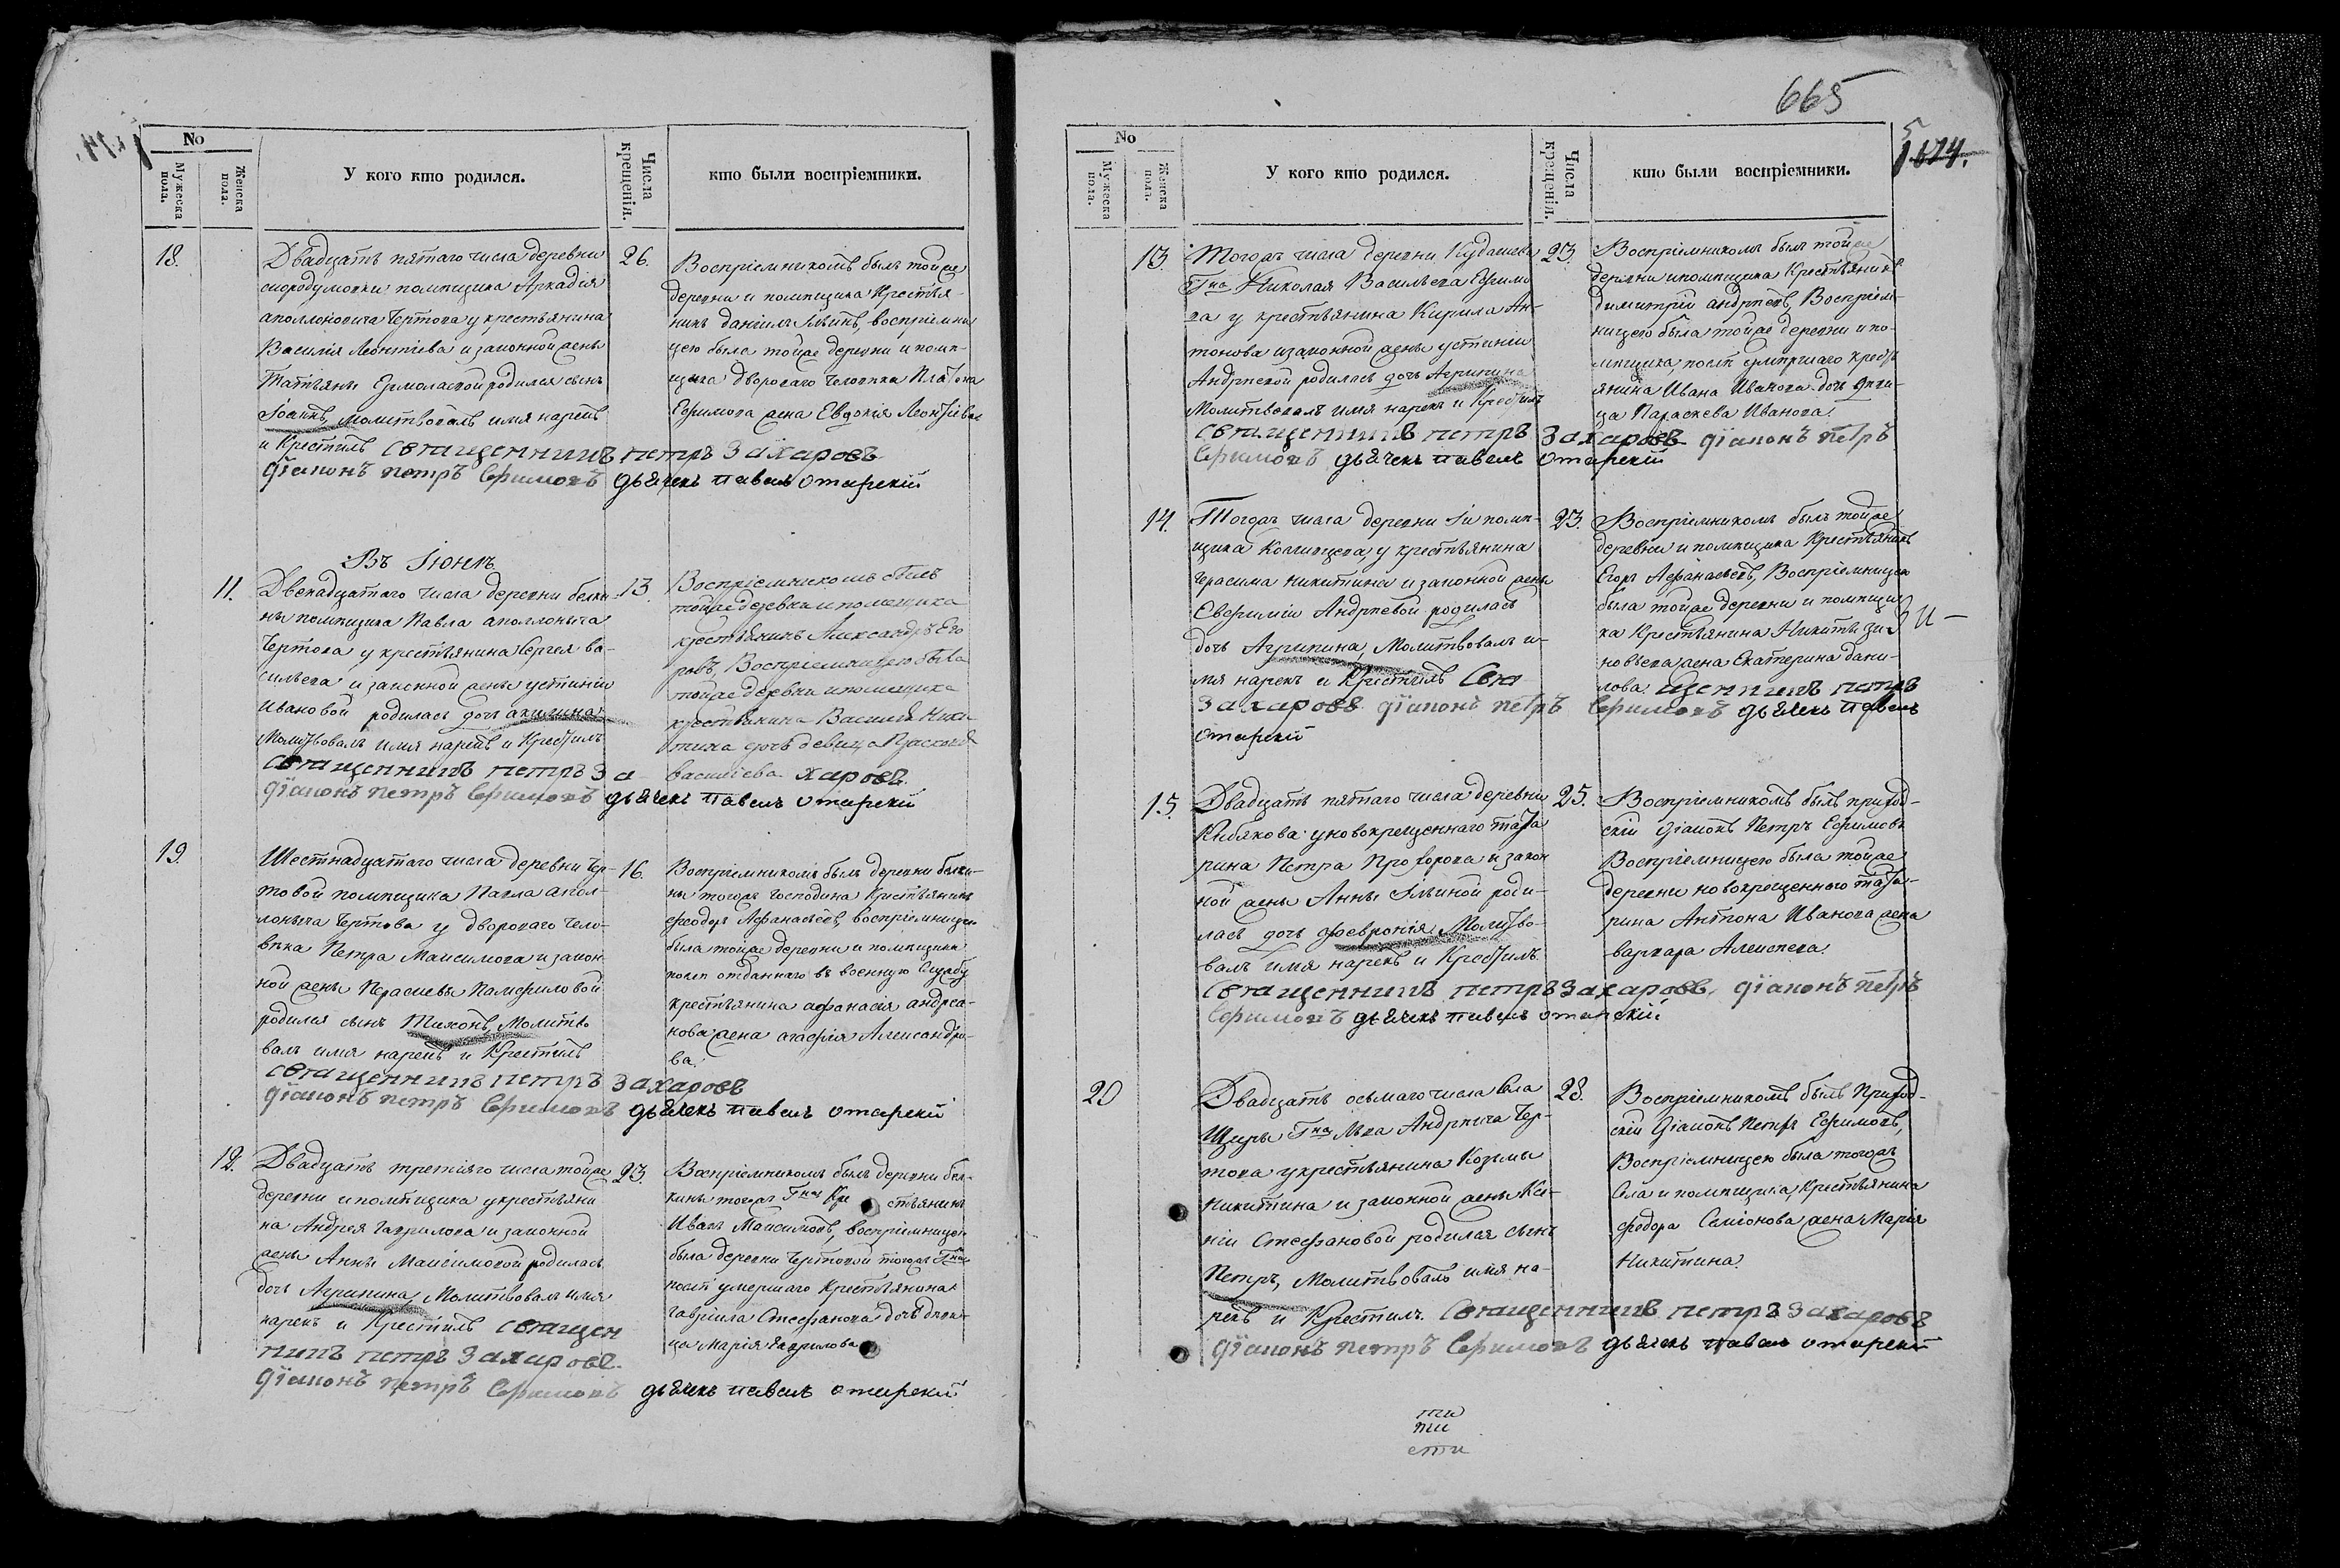 No
Мужеска пола.
Женска пола.
У кого кто родился.
Числа крещенія.
кто были воспріемники.
18.
Двадцать пятаго числа деревни
скородумовки помѣщика Аркадія
аполлоновича Чертова у крестьянина
Василія Леонтіева и законной жены
Татіяны Ермолаевой родился сынъ
Іоаннъ, Молитвовалъ имя нарекъ
и Крестилъ священникъ петръ Захаровъ
діаконъ петръ Ефимовъ дьячекъ павелъ отарскій
26.
Воспріемникомъ былъ тойже
деревни и помѣщика Крестья-
нинъ даніилъ Ильинъ, воспріемни-
цею была тойже деревни и помѣ-
щика двороваго человѣка Платона
Ефимова жена Евдокія Леонтіева
Въ Іюнѣ
11.
Двенадцатаго числа деревни белки-
ны помѣщика Павла аполлоныча
Чертова у крестьянина Сергея ва-
сильева и законной жены устиніи
ивановой родилась дочь акилина
Молитвовалъ имя нарекъ и Крестилъ
священникъ петръ Захаровъ
діаконъ петръ Ефимовъ дьячекъ павелъ отарскій
13.
Воспріемникомъ былъ
тойже деревни и помещика
крестьянинъ Александръ Его
ровъ, Воспріемницею была
тойже деревни и помещика
крестьянина Василія Ники
тина дочь девица
василіева
19.
Шестнадцатаго числа деревни Чер-
товой помѣщика Павла апол-
лоныча Чертова у двороваго чело-
вѣка Петра Максимова и закон
ной жены Параскевы Памфиловой
родился сынъ Тихонъ, Молитво
валъ имя нарекъ и Крестилъ
священникъ петръ Захаровъ
діаконъ петръ Ефимовъ дьячекъ павелъ отарскій
16.
Воспріемникомъ былъ деревни белки-
ны тогожъ господина Крестьянинъ
феодоръ Афанасьевъ, воспріемницею
была тойже деревни и помѣщика
послѣ отданнаго въ военную службу
крестьянина афанасія андреа-
нова жена агафія Александро-
ва.
12.
Двадцать третіяго числа тойже
деревни и помѣщика у крестьяни
на Андрея Гаврилова и законной
жены Анны Максимовой родилась
дочь Агрипина, Молитвовалъ имя
нарекъ и Крестилъ священ
никъ петръ Захаровъ
діаконъ петръ Ефимовъ дьячекъ павелъ отарскій
23.
Воспріемникомъ былъ деревни бел-
кины тогожъ Гна Кре стьянинъ
Иванъ Максимовъ, воспріемницею
была деревни Чертовой тогожъ Гна
послѣ умершаго Крестьянина
гавріила Стефанова дочь дѣви-
ца Марія Гаврилова
665
5
1674.
No
Мужеска пола.
Женска пола.
У кого кто родился.
Числа крещенія.
кто были воспріемники.
13.
Тогожъ числа деревни Кудашева
Гна Николая Васильева Ефимо
ва у крестьянина Кирила Ан-
тонова и законной жены устиніи
Андрѣевой родилась дочь Агрипина
Молитвовалъ имя нарекъ и Крестилъ
священникъ петръ Захаровъ діаконъ Петръ
Ефимовъ дьячекъ павелъ отарскій
23.
Воспріемникомъ былъ тойже
деревни и помѣщика Крестьянинъ
димитрій андрѣевъ, Воспріем-
ницею была тойже деревни и по-
мѣщика, послѣ умершаго крест
янина Ивана Иванова дочь дѣви-
ца Параскева Иванова.
14.
Тогожъ числа деревни помѣ-
щика у крестьянина
герасима никитина и законной жены
Евфиміи Андрѣевой родилась
дочь Агрипина, Молитвовалъ и-
мя нарекъ и Крестилъ Свя
щенникъ петръ
Захаровъ діаконъ петръ Ефимовъ дьячекъ павелъ
отарскій
23.
Воспріемникомъ былъ тойже
деревни и помѣщика Крестьянинъ
Егоръ Афанасьевъ, Воспріемницею
была тойже деревни и помѣщи
ка Крестьянина Никиты зи-
новьева жена Екатерина дани-
лова.
15.
Двадцать пятаго числа деревни
Кибякова у новокрещеннаго тата
рина Петра Прохорова и закон
ной жены Анны Ильиной роди-
лась дочь феѵронія, Молитво-
валъ имя нарекъ и Крестилъ
священникъ петръ Захаровъ, діаконъ Петръ
Ефимовъ дьячекъ павелъ отарскій
25.
Воспріемникомъ былъ приход-
скій діаконъ Петръ Ефимовъ
Воспріемницею была тойже
деревни новокрещеннаго тата-
рина Антона Иванова жена
варвара Алексеева.
20
Двадцать осьмаго числа села
Гна Льва Андрѣича Чер-
това у крестьянина Козьмы
никитина и законной жены Ксе-
ніи Стефановой родился сынъ
Петръ, Молитвовалъ имя на-
рекъ и Крестилъ. Священникъ петръ Захаровъ
діаконъ петръ Ефимовъ дьячекъ павелъ отарскій
28.
Воспріемникомъ былъ Приход-
скій діаконъ Петръ Ефимовъ,
Воспріемницею была тогожъ
села и помѣщика, Крестьянина
феодора Семіонова жена Марія
Никитина.
ти
ти
сти